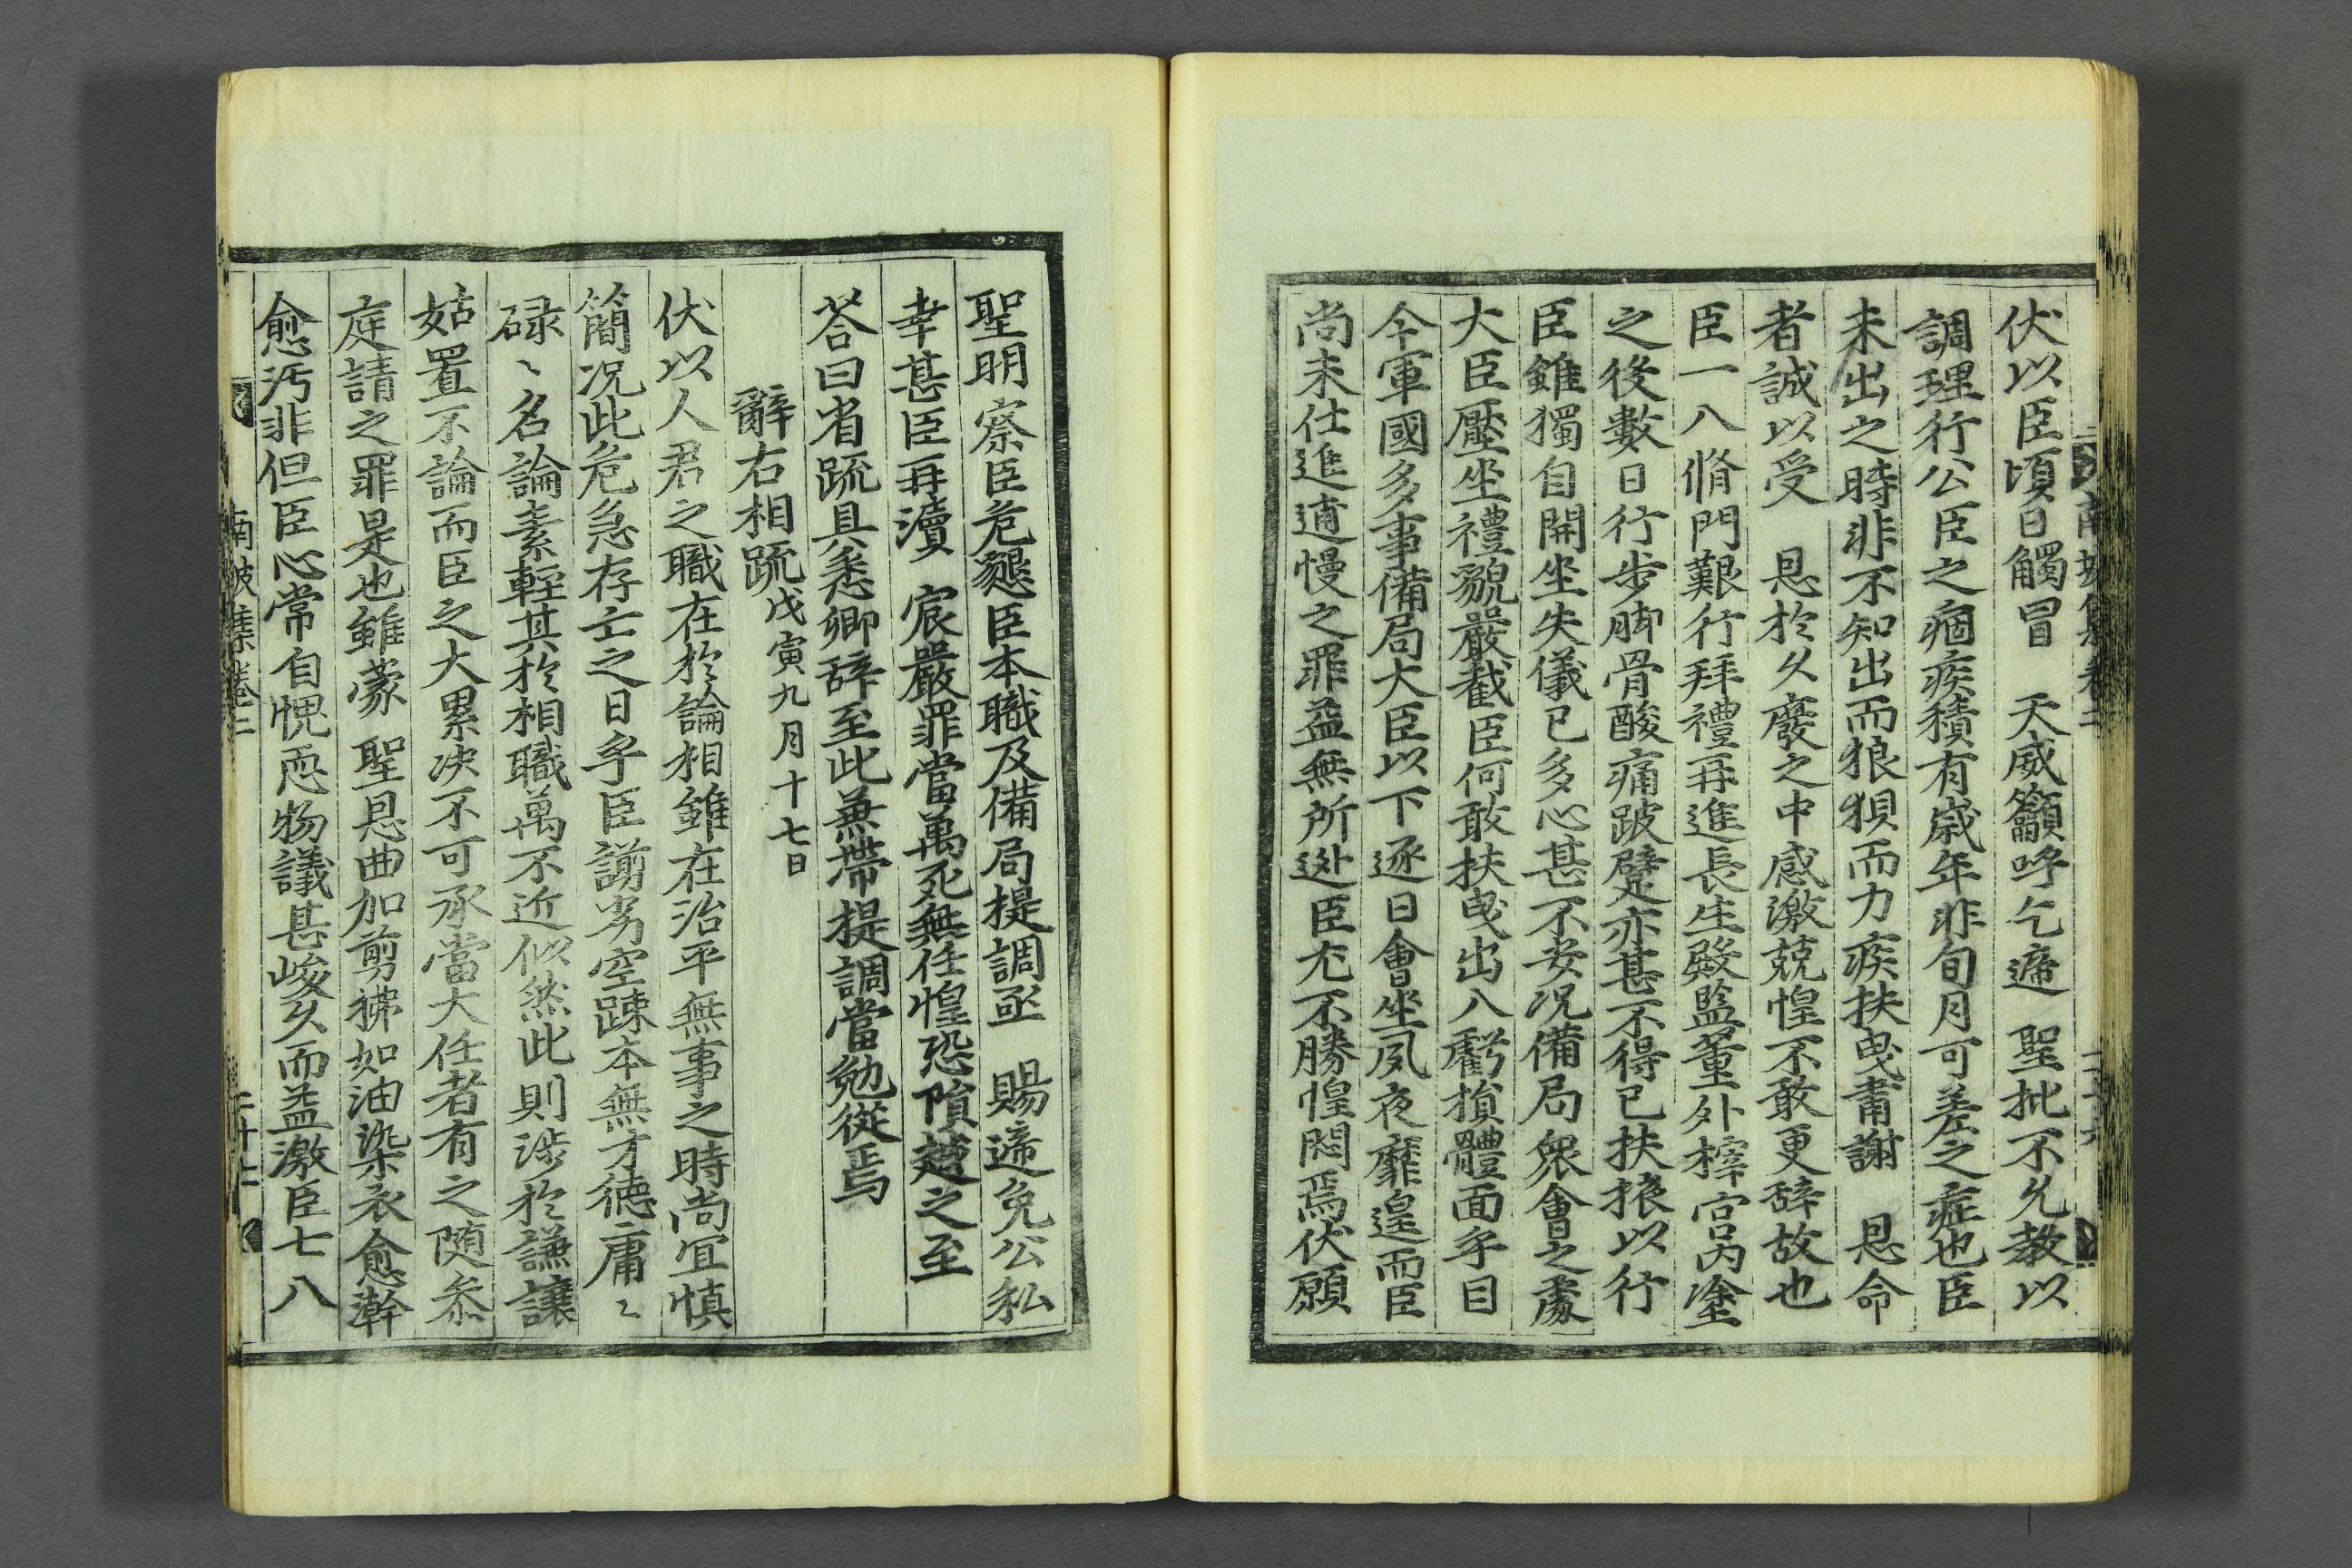 伏以臣頃日觸冒 天威籲呼乞遞 聖批不允教以
調理行公臣之痼疾積有歲年非旬月可差之症也臣
未出之時非不知出而狼狽而力疾扶曳肅謝 恩命
者誠以受 恩於久廢之中感激兢惶不敢更辞故也
臣一入脩門艱行拜禮再進長生殿監董外梓宮內塗
之後數日行步脚骨酸痛跛躄亦甚不得已扶掖以行
臣雖獨自開坐失儀已多心甚不安况備局衆會之處
大臣壓坐禮貌嚴截臣何敢扶曳出入虧損體面乎目
今軍國多事備局大臣以下逐日會坐夙夜靡遑而臣
尚未仕進逋慢之罪益無所逃臣尤不勝惶悶焉伏願
聖明察臣危懇臣本職及備局提調亟 賜遞免公私
幸甚臣再瀆 宸嚴罪當萬死無任惶恐隕越之至
答曰省疏具悉卿辞至此兼帶提調當勉從焉
辭右相疏戊寅九月十七日
伏以人君之職在於論相雖在治平無事之時尚宜慎
簡况此危急存亡之日乎臣謭劣空踈本無才德庸〻
碌〻名論素輕其於相職萬不近似然此則涉於謙讓
姑置不論而臣之大累决不可承當大任者有之随参
庭請之罪是也雖蒙 聖恩曲加剪拂如油染衣愈澣
愈汚非但臣心常自愧恧物議甚峻久而益激臣七八
南坡集卷二 二十七